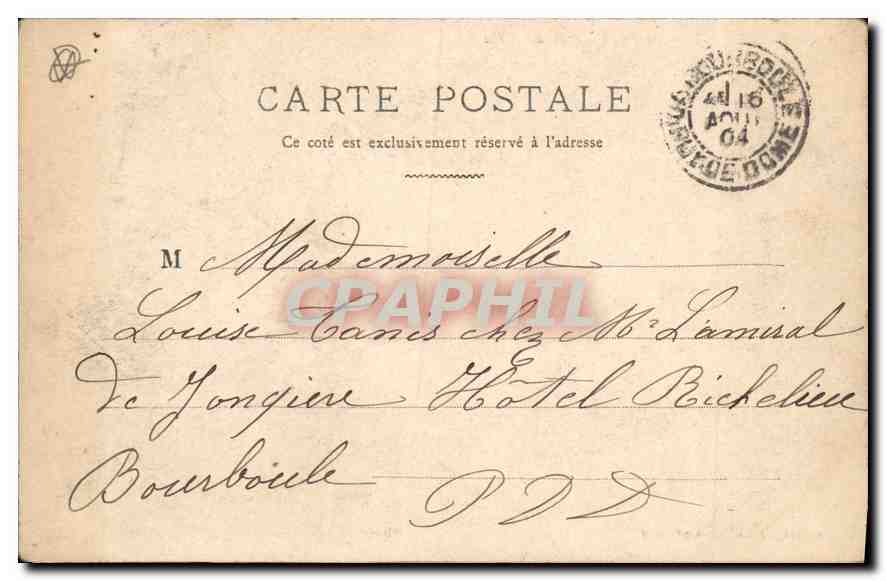 CARTE POSTALE
Ce coté est exclusivement réservé à l'adresse
LA BOURBOULE
16
AOUT
04
PUY-DE-DOME
M Mademoiselle
CPAPHIL
Louise Canis chez Mr L'amiral
de Jonquière Hôtel Richelieu
Bourboule
P D D